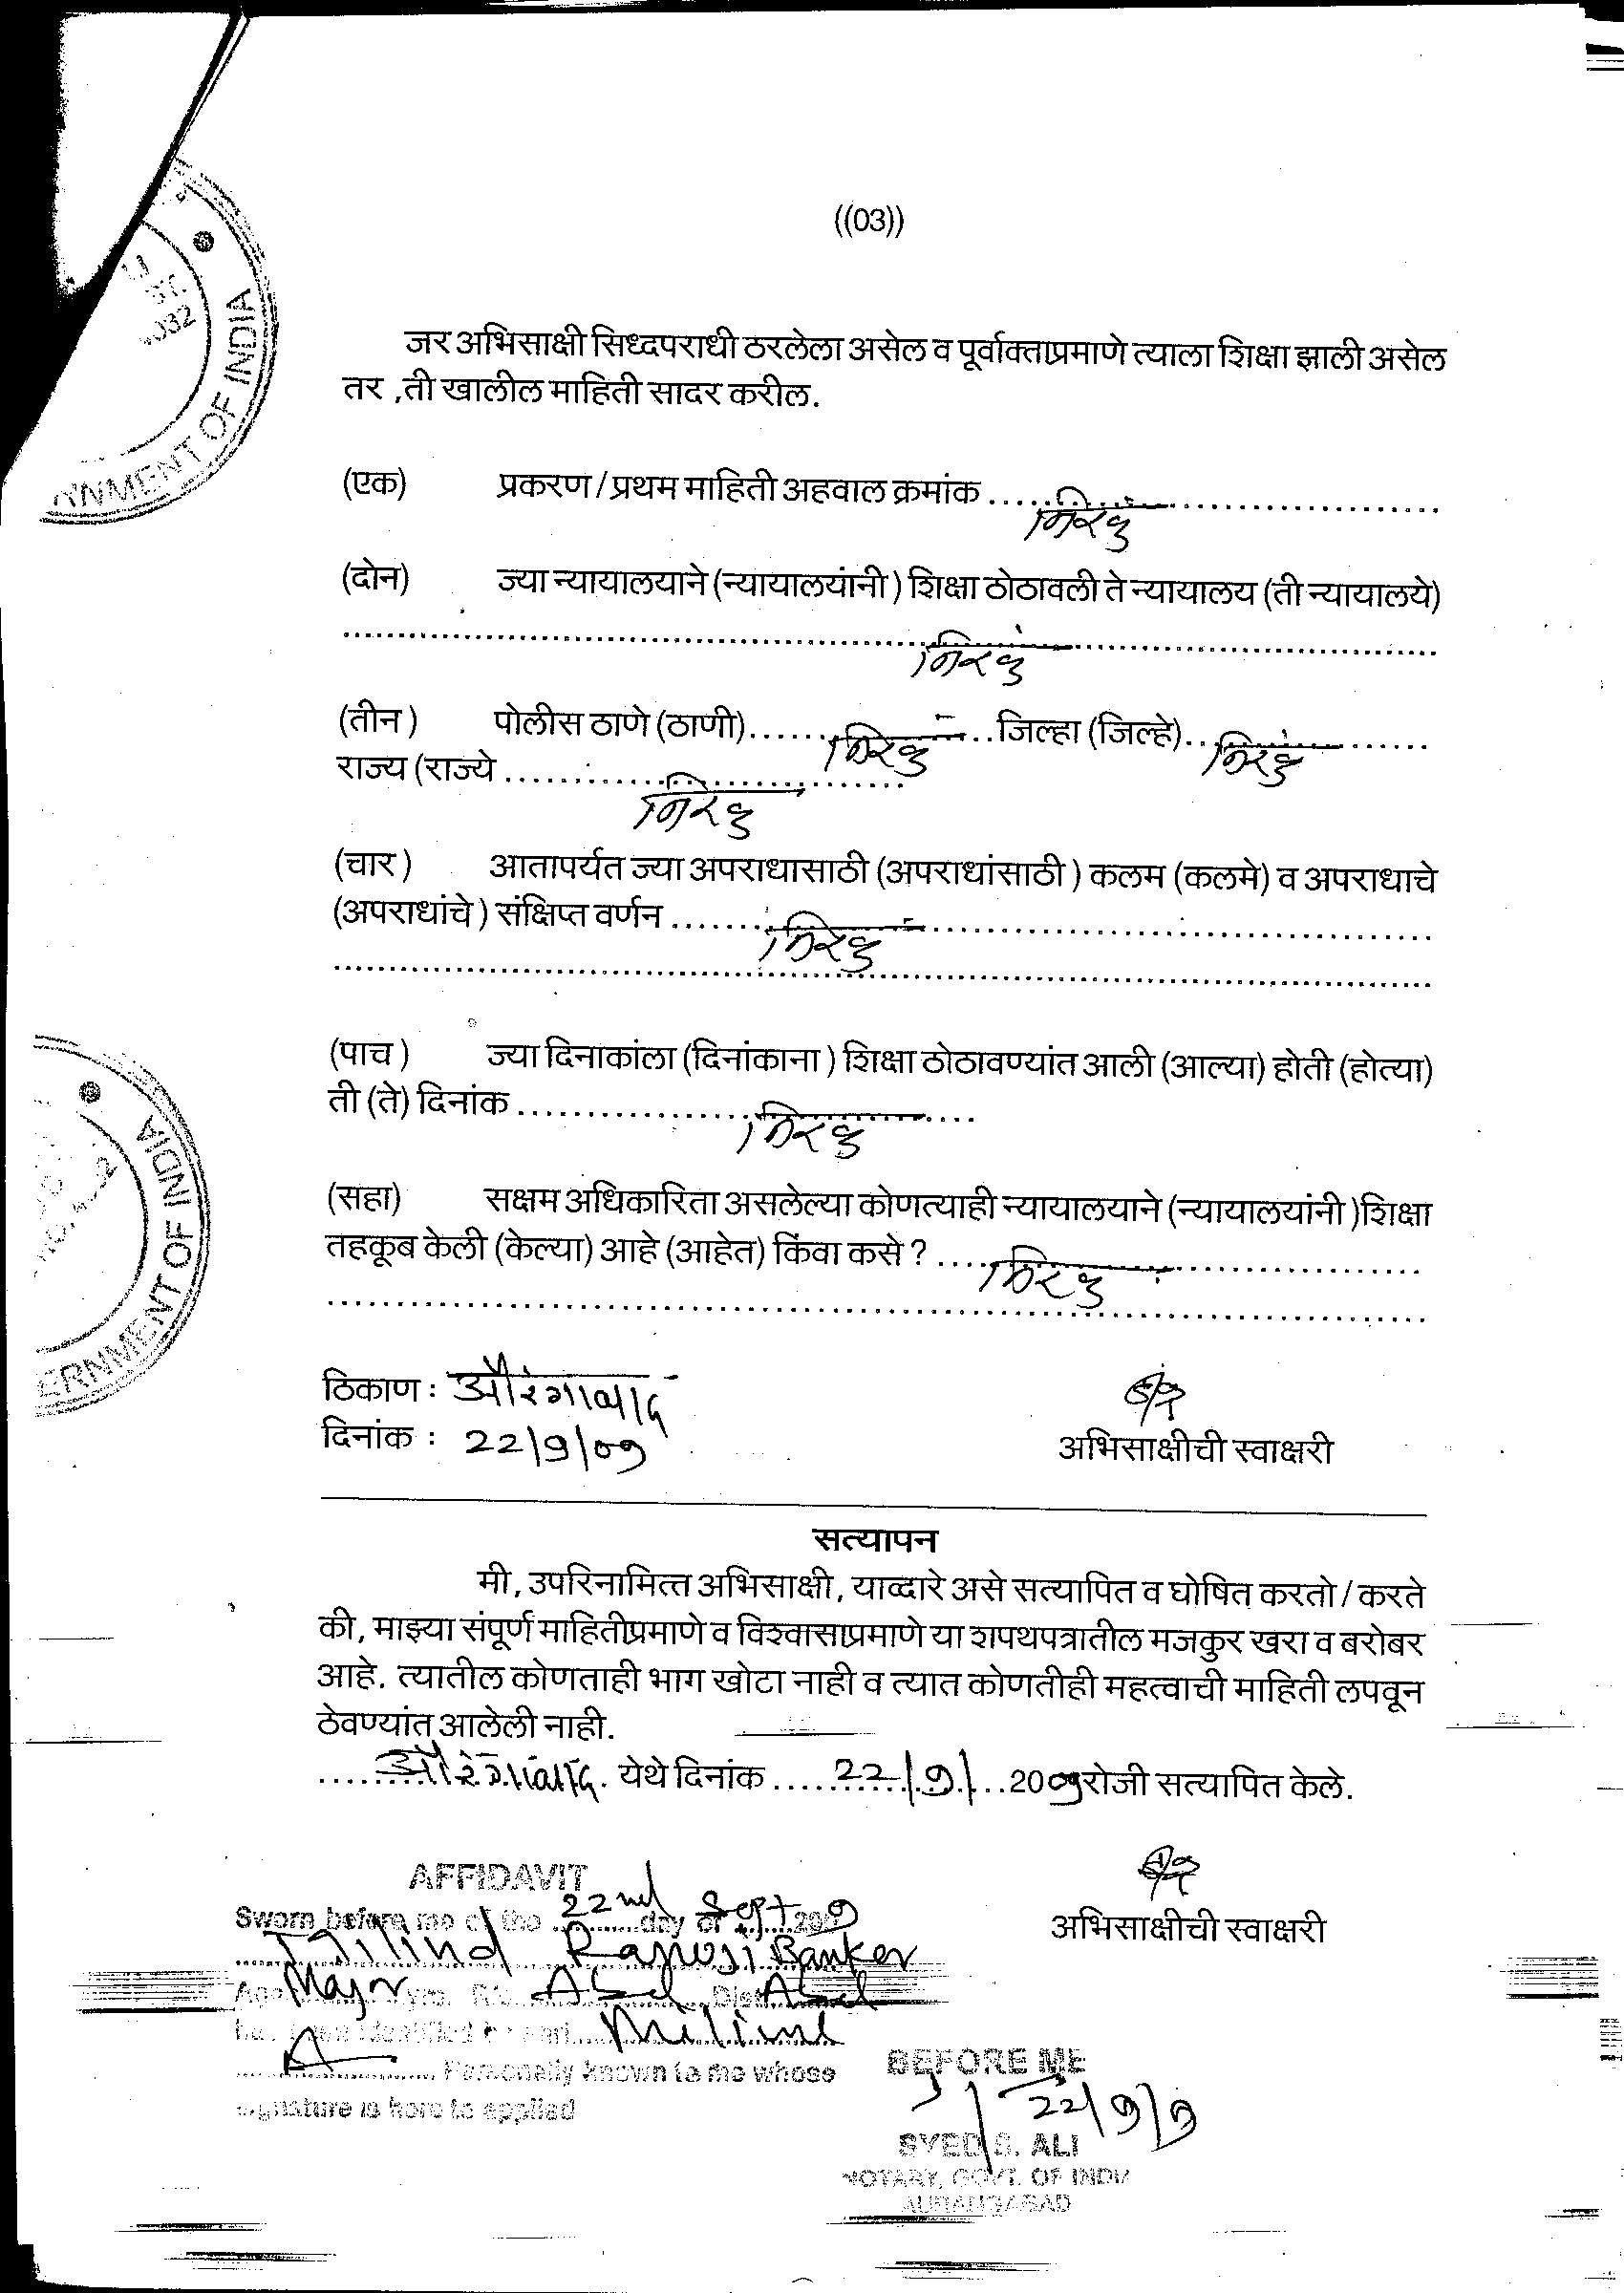 ((03))
जर अभिसाक्षी सिध्दपराधी ठरलेला असेल व पूर्वाक्ताप्रमाणे त्याला शिक्षा झाली असेल
तर ,ती खालील माहिती सादर करील.
(एक) प्रकरण / प्रथम माहिती अहवाल क्रमांक ............ निरंक ............
(दोन) ज्या न्यायालयाने (न्यायालयांनी ) शिक्षा ठोठावली ते न्यायालय (ती न्यायालये)
............ निरंक ............
(तीन ) पोलीस ठाणे (ठाणी)....... निरंक ....जिल्हा (जिल्हे)... निरंक .......
राज्य (राज्ये ............ निरंक ........
(चार ) आतापर्यत ज्या अपराधासाठी (अपराधांसाठी ) कलम (कलमे) व अपराधाचे
(अपराधांचे ) संक्षिप्त वर्णन ........ निरंक ............
(पाच ) ज्या दिनाकांला (दिनांकाना ) शिक्षा ठोठावण्यांत आली (आल्या) होती (होत्या)
ती (ते) दिनांक ............ निरंक ....
(सहा) सक्षम अधिकारिता असलेल्या कोणत्याही न्यायालयाने (न्यायालयांनी )शिक्षा
तहकूब केली (केल्या) आहे (आहेत) किंवा कसे ? ..... निरंक ............
ठिकाण : औरंगाबाद
दिनांक : 22/9/09
अभिसाक्षीची स्वाक्षरी
सत्यापन
मी, उपरिनामित्त अभिसाक्षी, याव्दारे असे सत्यापित व घोषित करतो / करते
की, माझ्या संपूर्ण माहितीप्रमाणे व विश्वासाप्रमाणे या शपथपत्रातील मजकुर खरा व बरोबर
आहे. त्यातील कोणताही भाग खोटा नाही व त्यात कोणतीही महत्वाची माहिती लपवून
ठेवण्यांत आलेली नाही.
औरंगाबाद. येथे दिनांक .... 22/9/ ...2009 रोजी सत्यापित केले.
अभिसाक्षीची स्वाक्षरी
AFFIDAVIT
Sworn before me of the 22nd day of Sept 2009
Milind Ranuji Banker
Age Major yrs. R/o Abad Dist. Abad
has been identified by Shri Milind
Personally known to me whose
signature is here to applied
BEFORE ME
22/9/9
SYED S. ALI
NOTARY, GOVT. OF INDIA
AURANGABAD
GOVERNMENT OF INDIA
ERNMENT OF INDIA